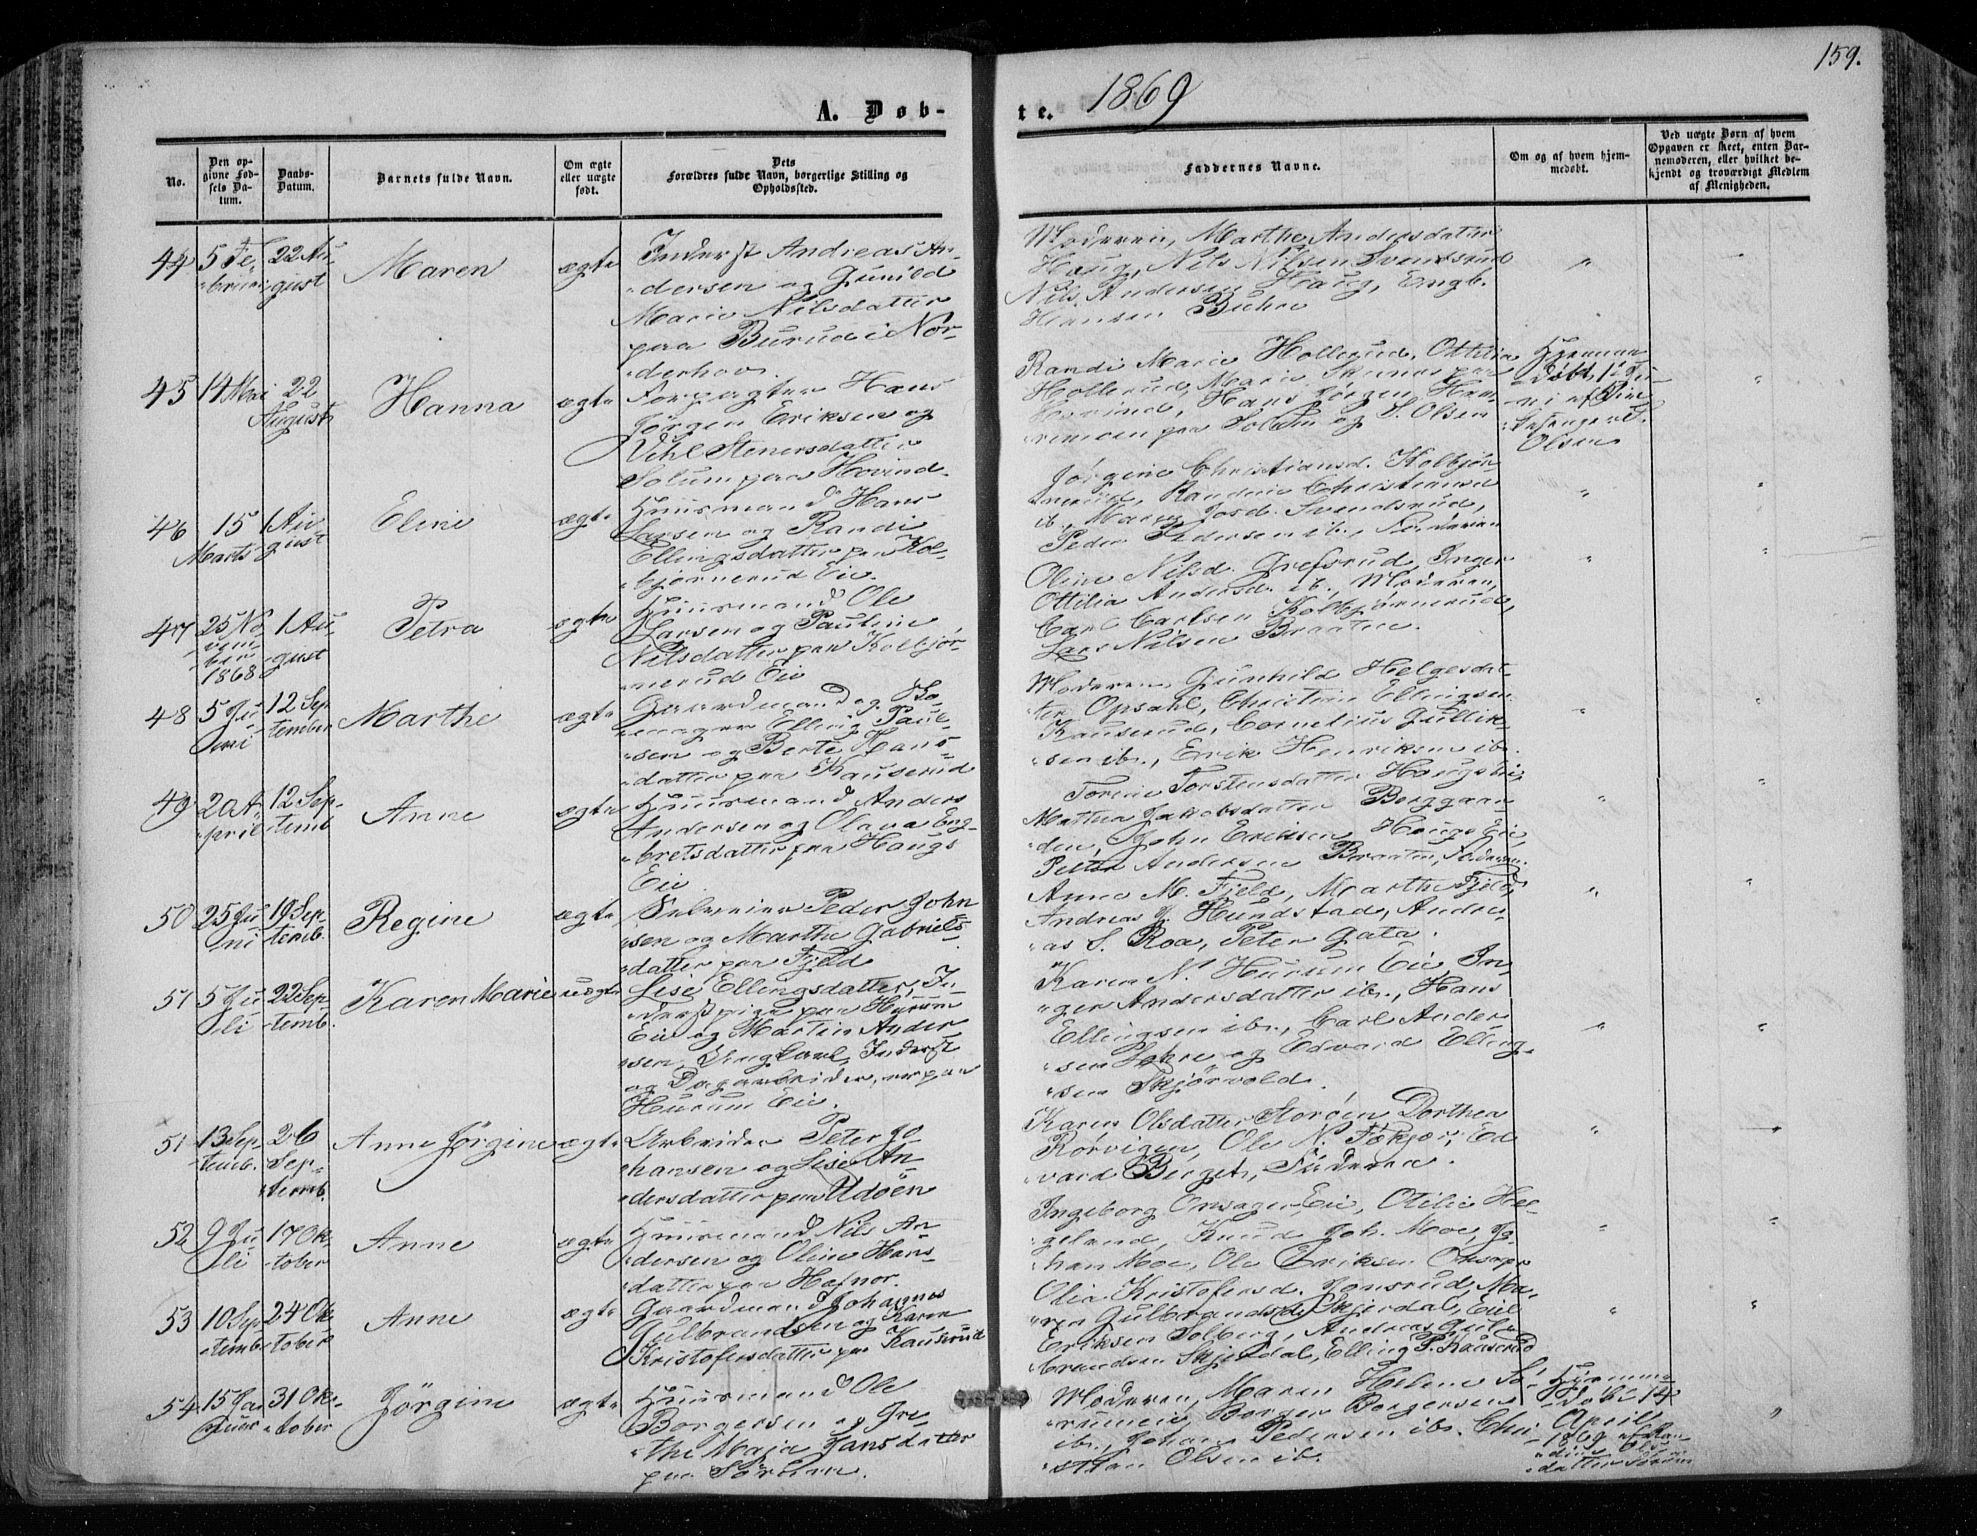 159.
A. Døb-
te.
1869
No.
Den op-
givne Fød-
sels Da-
tum.
Daabs-
Datum.
Barnets fulde Navn.
Om ægte
eller uægte
født.
Dets
Forældres fulde Navn, borgerlige Stilling og
Opholdssted.
Faddernes Navne.
Om og af hvem hjem-
medøbt.
Ved uægte Børn af hvem
Opgaven er skeet, enten Bar-
nemoderen, eller hvilket be-
kjendt og troværdigt Medlem
af Menigheden.
44
5 Fe-
bruar
22 Au-
gust
Maren
ægte
Inderst Andreas An-
dersen og Gunild
Marie Nilsdatter
paa Burud i Nor-
derhov.
Moderen, Marthe Andersdatter
Haug, Nils Nilsen Svendsrud
Nils Andersen Haug, Engb.
Hansen
45
14 Mai
22
August
Hanna
ægte
Forpagter Hans
Jørgen Eriksen og
Stenersdatter
Solum paa Hovind.
Randi Marie Hollerud, Ottilia
Hollerud, Marie
Hans Jørgen
paa Solum og S. Olsen
Hjemme-
døbt 12 Ju-
ni af
Olsen
46
15
Marts
1 Au-
gust
Eline
ægte
Huusmand Hans
Larsen og Randi
Ellingsdatter paa Kol-
bjørnerud Eie.
Jørgine Christiansd. Kolbjør-
nerud, Christiansd
ib., Svendsrud,
Peder Pedersen ib., Faderen
47
25 No-
vem-
ber
1868
1 Au-
gust
Petra
ægte
Huusmand Ole
Larsen og Pauline
Nilsdatter paa Kolbjør-
nerud Eie
Oline Nilsd. Grefsrud, Inger
Ottilia Andersd. ib., Moderen,
Carl Carlsen Kolbjørnerud,
Lars Nilsen Braaten.
48
5 Ju-
ni
12 Sep-
tember
Marthe
ægte
Gaardmand og Sko-
mager Elling Paul-
sen og Berte Hans-
datter paa Kauserud
Moderen, Gunhild Helgesdat-
ter Opsahl, Christine Ellingsen
Kauserud, Cornelius Gullik-
sen ib., Erik Henriksen ib.
49
2 A-
pril
12 Sep-
temb.
Anne
ægte
Huusmand Anders
Andersen og Olava Eng-
bretsdatter paa Haugs
Eie
Torine Torstensdatter Haugs Eie
Mathea Jakobsdatter Berggaar-
den, John Eriksen Haugs Eie,
Petter Andersen Braaten, Faderen.
50
25 Ju-
ni
19 Sep-
temb.
Regine
ægte
Selveier Peder John-
sen og Marthe Gabriels-
datter paa Fjeld
Anne M. Fjeld, Marthe Fjeld,
Andreas J. Hundstad, Andre-
as S. Roa, Peter Gata.
51
5 Ju-
li
22 Sep-
temb.
Karen Marie
uægte
Lise Ellingsdatter, In-
derstpige paa Hurum
Eie og Martin Ander-
sen, Ungkarl, Inderst
og Dagarbeider, er paa
Hurum Eie.
Karen N. Hurum Eie, In-
ger Andersdatter ib., Hans
Ellingsen ib., Carl Ander-
sen og Edvard Elling-
sen Skjørvold.
51
13 Sep-
temb.
26
Sep-
temb.
Anne Jørgine
ægte
Arbeider Peter Jo-
hansen og Lise An-
dersdatter paa Utøen
Karen Olsdatter Storøen, Dorthea
Rørvigen, Ole N. Ed-
vard Berget, Faderen.
52
9 Ju-
li
17 Ok-
tober
Anne
ægte
Huusmand Nils An-
dersen og Oline Hans-
datter paa Hafnor.
Ingeborg Onsager Eie, Otilie Hel-
geland, Knud Joh. Moe, Jo-
han Moe, Ole Eriksen Onsager
53
10 Sep-
temb.
24 Ok-
tober
Anne
ægte
Gaardmand Johannes
Gulbrandsen og Karen
Kristofersdatter paa Kauserud
Olia Kristofersd. Jonsrud, Ma-
ren Gulbrandsd. Skjerdal,
Eriksen Solberg, Andreas Gul-
brandsen Skjerdal, Elling P. Kauserud
54
15 Ja-
nuar
31 Ok-
tober
Jørgine
ægte
Huusmand Ole
Borgersen og Gre-
the Maja Hansdatter
paa Sørum.
Moderen, Maren Helene Sø-
rumeie, Borger Borgersen
ib., Johan Pedersen ib. Chri-
stian Olsen ib.
Hjemme-
døbt 14
April
1869 af Ran-
dine Ols-
datter Sørum